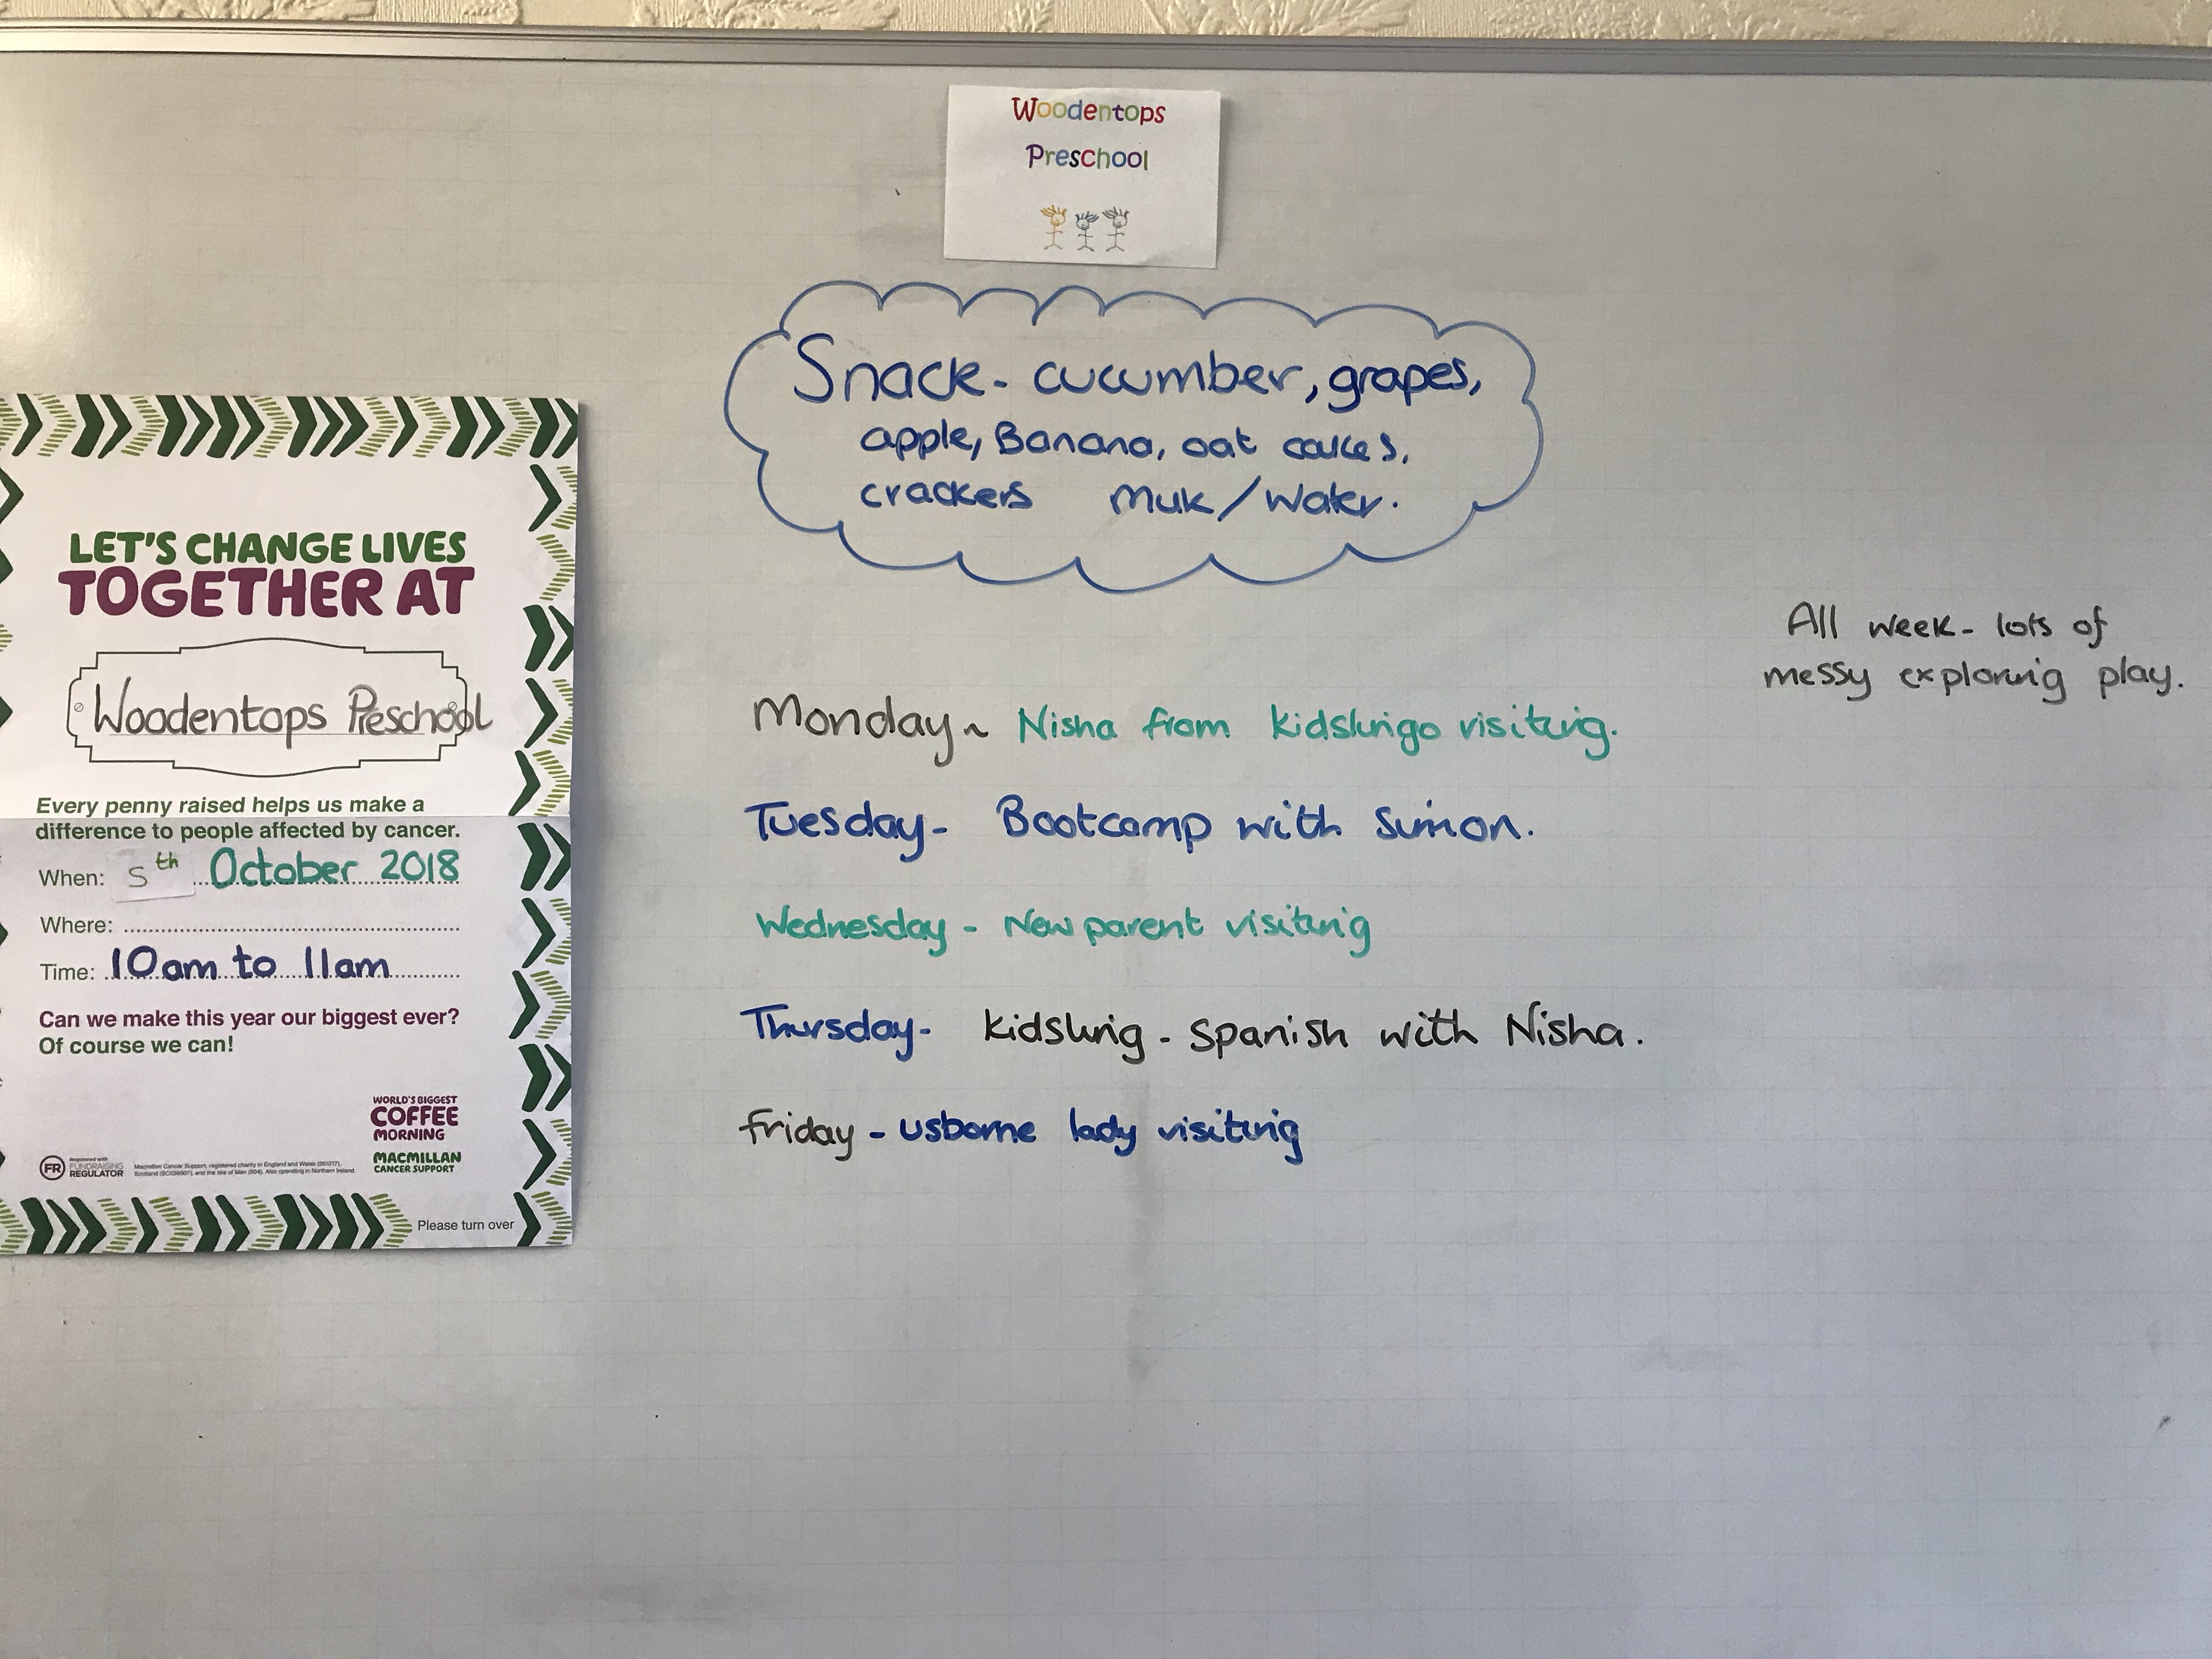 Woodentops
Preschool
Snack - cucumber, grapes,
apple, Banana, oat cakes,
crackers Milk / Water.
All week - lots of
messy exploring play.
Monday ~ Nisha from kidslingo visiting.
Tuesday - Bootcamp with Simon.
Wednesday - New parent visiting
Thursday - kidsling - Spanish with Nisha.
friday - usborne lady visiting
LET'S CHANGE LIVES
TOGETHER AT
Woodentops Preschool
Every penny raised helps us make a
difference to people affected by cancer.
When: 5th October 2018
Where:
Time: 10am to 11am
Can we make this year our biggest ever?
Of course we can!
WORLD'S BIGGEST
COFFEE
MORNING
MACMILLAN
CANCER SUPPORT
FR
Registered with
FUNDRAISING
REGULATOR
Macmillan Cancer Support, registered charity in England and Wales (261017),
Scotland (SC039907), and the Isle of Man (604). Also operating in Northern Ireland.
Please turn over